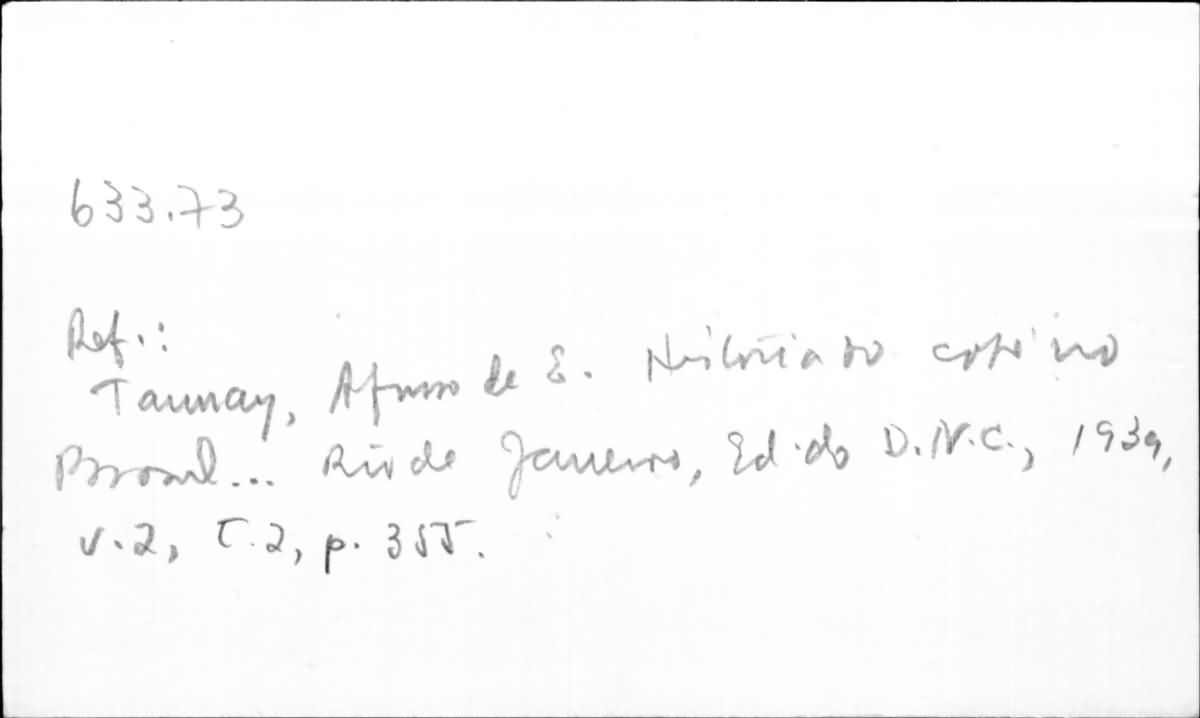 633.73
Ref.:
Taunay, Afonso de E. História do café no
Brasil... Rio de Janeiro, Ed. do D.N.C., 1939,
v.2, T.2, p. 355.